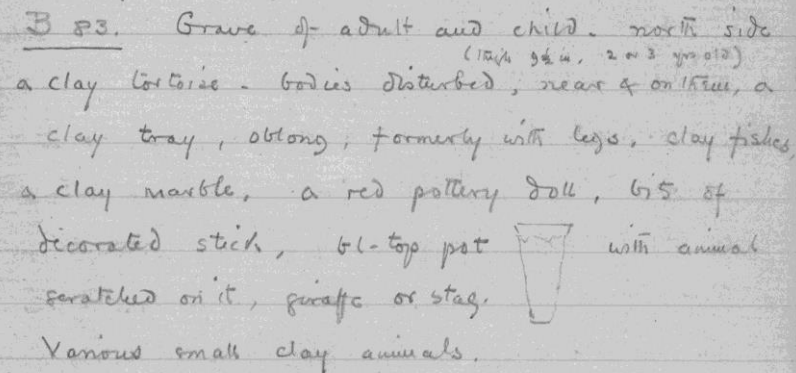 B 83. Grave of adult and child. north side
(thigh 9½ in, 2 or 3 yrs old)
a clay tortoise. bodies disturbed, near & on them, a
clay tray, oblong, formerly with legs. clay fishes,
a clay marble, a red pottery doll, bits of
decorated stick, bl-top pot with animal
scratched on it, giraffe or stag.
Various small clay animals.